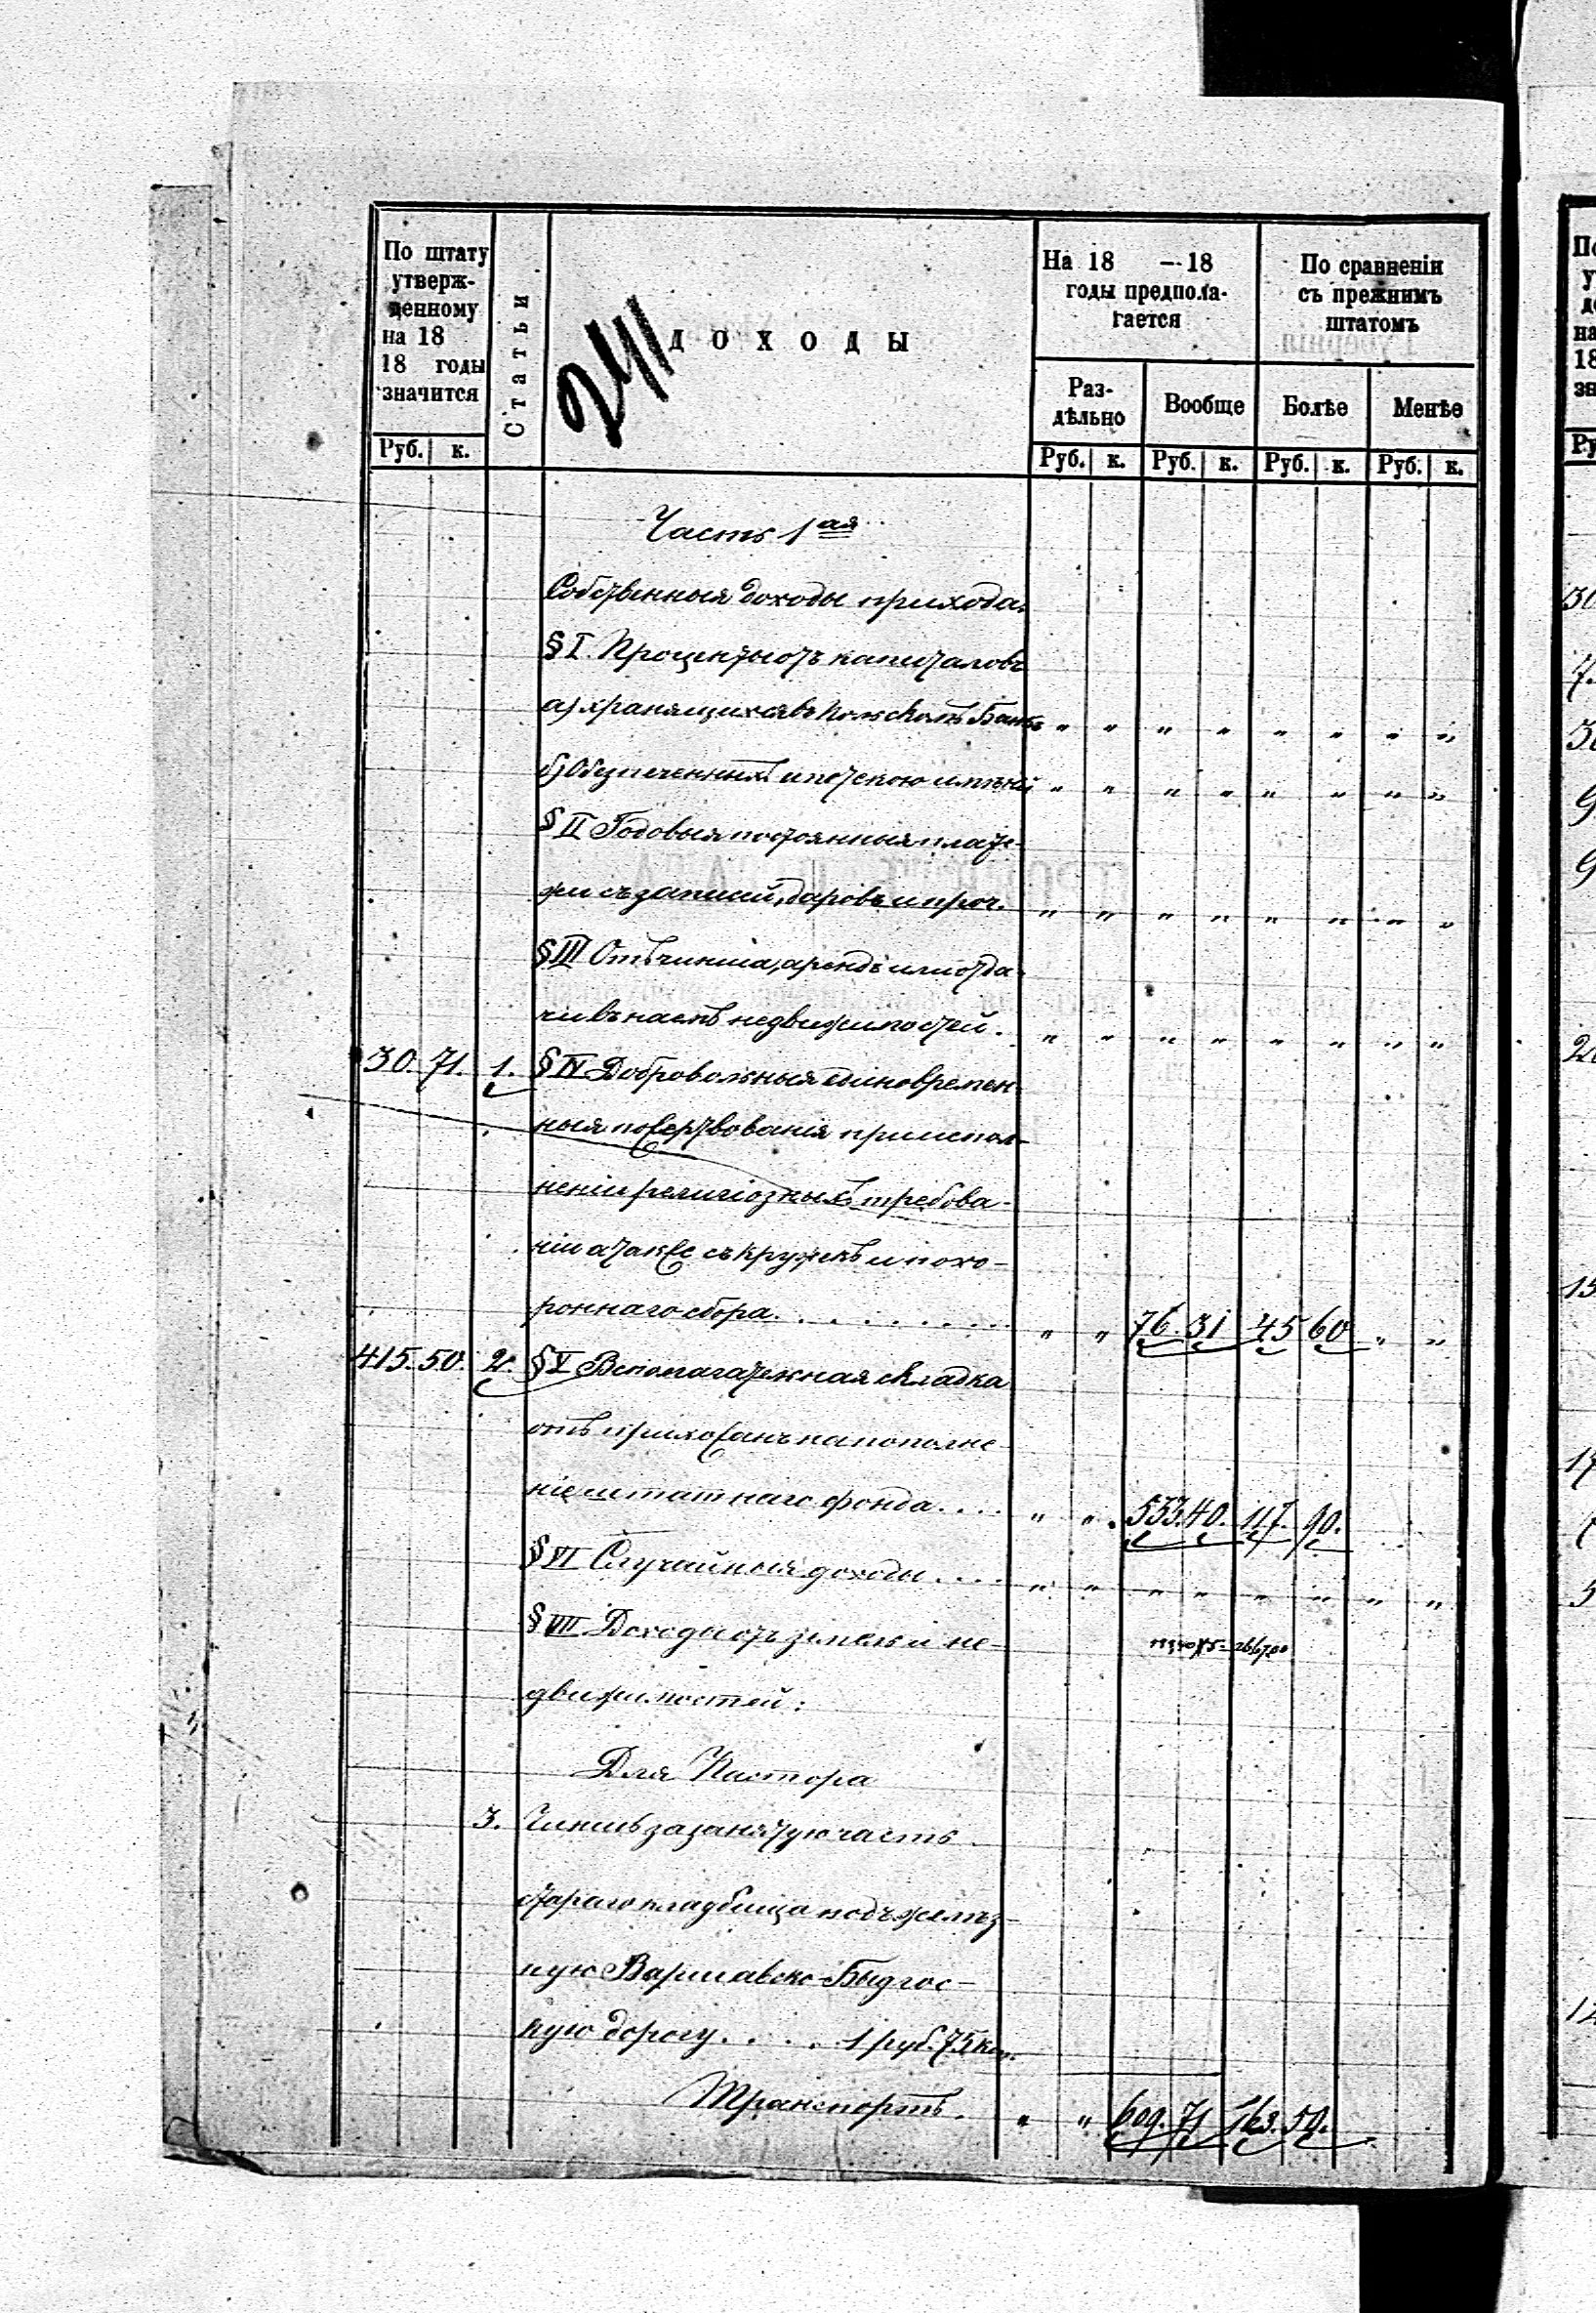 241
По штату утверж- денному на 18 18 годы значится
Статьи
ДОХОДЫ
На 18 — 18 годы предпола- гается
По сравненіи съ прежнимъ штатомъ
Раз- дѣльно
Вообще
Болѣе
Менѣе
Руб. к. Руб. к. Руб. к. Руб. к. Руб. к.
Часть 1ая
Собственныя доходы прихода.
§ I. Проценты отъ капиталовъ
а) хранящихся въ Польскомъ Банкѣ " " " " " " " "
б) Обезпеченныхъ ипотекою имѣній " " " " " " " "
§ II Годовыя постоянныя плате-
жи съ записей, даровъ и проч. " " " " " " " "
§ III Отъ чинша, арендъ или отда-
чи въ наемъ недвижимостей. " " " " " " " "
30. 71. 1. § IV Добровольныя единовремен-
ныя пожертвованія при испол-
неніи религіозныхъ требова-
ніи а также съ кружекъ и похо-
роннаго сбора. . . . . . . . . " " 76. 31 45 60 " "
415. 50. 2. § V Вспомагательная складка
отъ прихожанъ на пополне-
ніе штатнаго фонда. . . . " " 533. 40. 117. 90.
§ VI Случайныя доходы. . . . " " " " " " " "
§ VII Доходы отъ земель и не-
движимостей:
Для Пастора
3. Чиншъ за занятую часть
стараго кладбища подъ желѣз-
ную Варшавско-Быдгос-
кую дорогу. . . . 1 руб. 75 коп.
Транспортъ. " " 609. 71 163. 50.